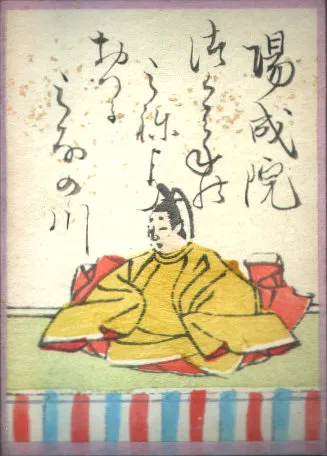 陽成院
つくはねの
みねより
おつる
みなの川